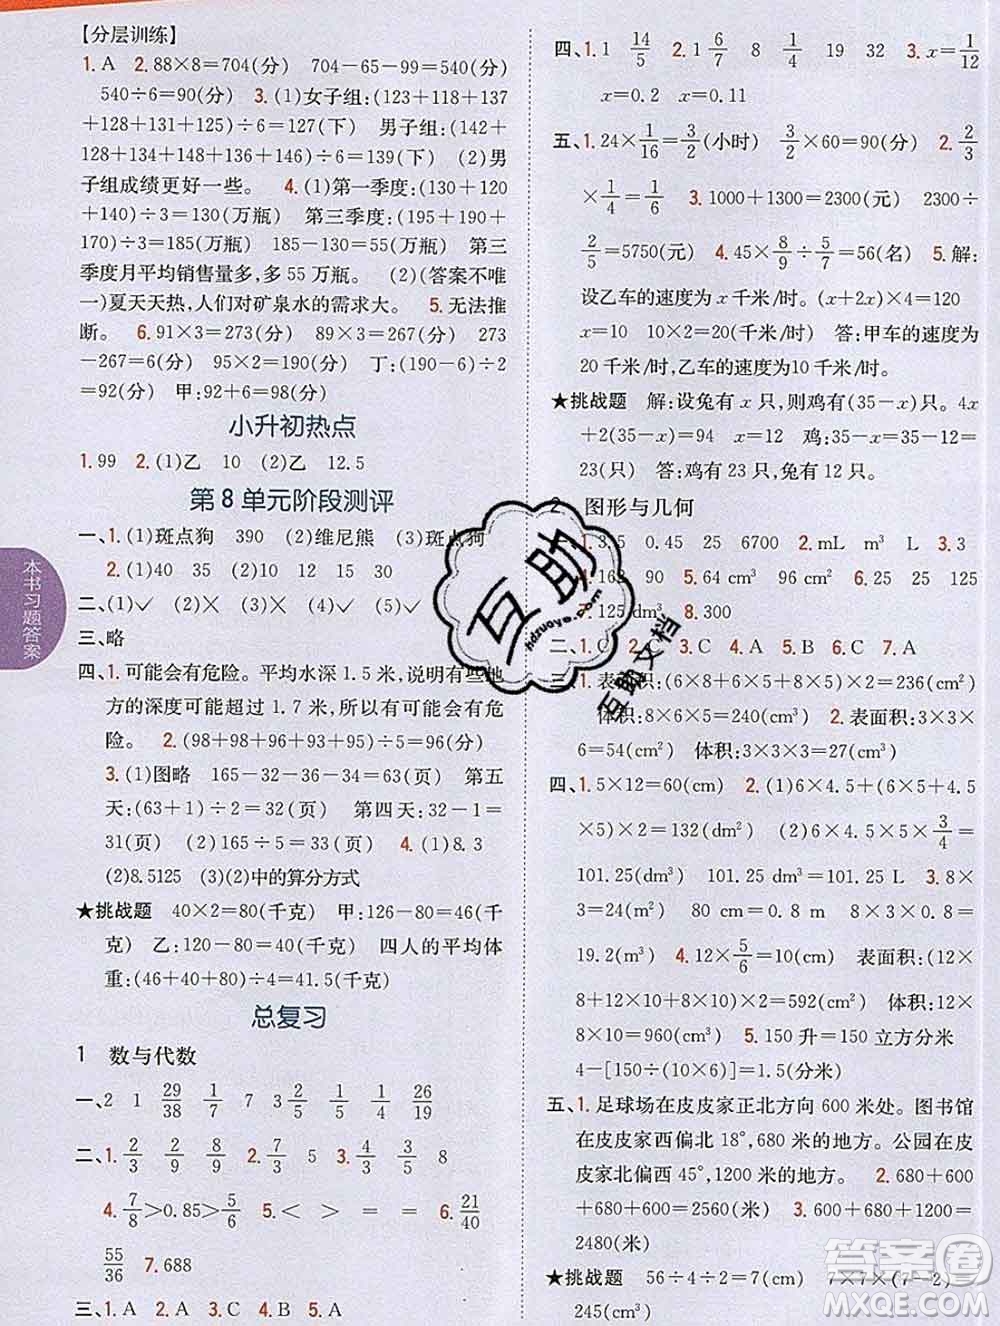 【分层训练】
1. A 2. 88×8=704(分) 704-65-99=540(分)
540÷6=90(分) 3. (1)女子组:(123+118+137
+128+131+125)÷6=127(下) 男子组:(142+
128+134+133+148+149)÷6=139(下) (2)男
子组成绩更好一些。 4. (1)第一季度:(130+120
+140)÷3=130(万瓶) 第三季度:(195+190+
170)÷3=185(万瓶) 185-130=55(万瓶) 第三
季度月平均销售量多,多 55 万瓶。 (2)(答案不唯
一)夏天天热,人们对矿泉水的需求大。 5. 无法推
断。 6. 91×3=273(分) 89×3=267(分) 273
-267=6(分) 95×2=190(分) 丁:(190-6)÷2
=92(分) 甲:92+6=98(分)
小升初热点
1. 99 2. (1)乙 10 (2)乙 12.5
第 8 单元阶段测评
一、1. (1)斑点狗 390 (2)维尼熊 (3)斑点狗
2. (1)40 35 (2)10 12 15 30
二、(1)✓ (2)× (3)✓ (4)× (5)✓
三、略
四、1. 可能会有危险。平均水深 1.5 米,说明有些地
方的深度可能超过 1.7 米,所以有可能会有危
险。 2. (98+98+96+93+95)÷5=96(分)
3. (1)图略 165-32-36-34=63(页) 第五
天:(63+1)÷2=32(页) 第四天:63-32=
31(页) (2)165÷5=33(页) 4. (1)8.3
(2)8.5125 (3)(2)中的算分方式
★挑战题 40×2=80(千克) 甲:126-80=46(千
克) 乙:120-80=40(千克) 四人的平均体
重:(46+40+80)÷4=41.5(千克)
总复习
1 数与代数
一、2 1 29/38 1/7 7 3 2/5 1/5 4/5 26/19
二、1. 2/3 2/9 2/9 2. 2/5 5 3. 4/3 3/5 8
4. 7/8>0.85>5/6 5. < > > = = 6. 21/40
55/36 7. 688
三、1. A 2. A 3. C 4. B 5. A
四、1. 1 14/5 2. 1 6/7 8 1/4 19 32 3. x=1/12
x=0.2 x=0.11
五、1. 24×1/16=3/2(小时) 3/2×60=90(分) 2. 2/3
×1/4=1/6 3. 1000+1300=2300(元) 2300÷
2/5=5750(元) 4. 45×8/9÷5/7=56(名) 5. 解:
设乙车的速度为 x 千米/时。(x+2x)×4=120
x=10 10×2=20(千米/时) 答:甲车的速度为
20 千米/时,乙车的速度为10 千米/时。
★挑战题 解:设兔有 x 只,则鸡有(35-x)只。4x
+2(35-x)=94 x=12 鸡:35-x=35-12=
23(只) 答:鸡有 23 只,兔有 12 只。
2 图形与几何
一、1. 3.5 0.45 25 6700 2. mL m³ L 3. 90
4. 90 5. 64 cm³ cm² 6. 25 25 125
7. 125 dm³ 8. 300
二、1. C 2. C 3. C 4. A 5. B 6. C 7. A
三、1. 表面积:(6×8+6×5+8×5)×2=236(cm²)
体积:8×6×5=240(cm³) 2. 表面积:3×3×
6=54(cm²) 体积:3×3×3=27(cm³)
四、1. 5×12=60(cm) 2. (1)6×5+(6×5+4.5
×5)×2=132(dm²) (2)6×4.5×5×3/4=
101.25(dm³) 101.25 dm³=101.25 L 3. 8×
3=24(m) 80 cm=0.8 m 0.8×3×8=
19.2(m²) 4. 12×5/6=10(cm) 表面积:(12×
8+12×10+8×10)×2=592(cm²) 体积:12×
8×10=960(cm³) 5. 150 升=150 立方分米
4-[150÷(10×6)]=1.5(分米)
五、1. 足球场在皮皮家正北方向 600 米处。图书馆
在皮皮家西偏北 18°,680 米的地方。公园在皮
皮家北偏西 45°,1200 米的地方。 2. 680+600
+680+600=2560(米) 3. 600+680+1200=
2480(米)
★挑战题 56÷4÷2=7(cm) 7×7×(7-2)=
245(cm³)
本书习题答案
互助
hdzuoye.com
互助文档
答案圈
MXQE.COM